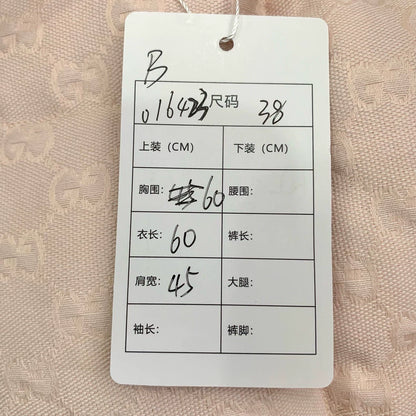 B
016423 尺码 38
上装（CM） 下装（CM）
胸围: 60 腰围:
衣长: 60 裤长:
肩宽: 45 大腿:
袖长: 裤脚: